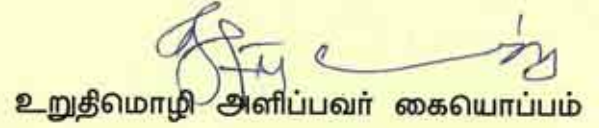 உறுதிமொழி அளிப்பவர் கையொப்பம்